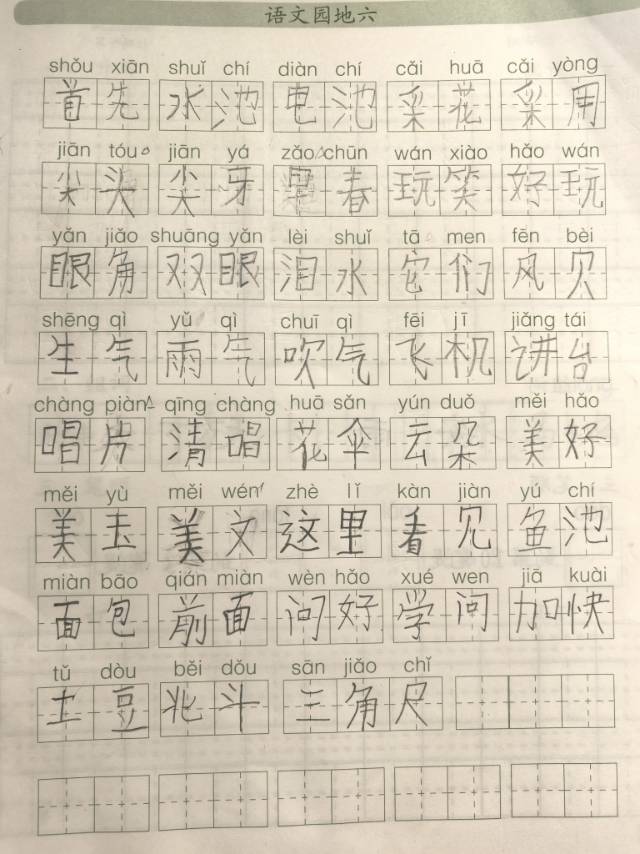 语文园地六
shǒu xiān shuǐ chí diàn chí cǎi huā cǎi yòng
首先 水池 电池 采花 采用
jiān tóu jiān yá zǎo chūn wán xiào hǎo wán
尖头 尖牙 早春 玩笑 好玩
yǎn jiǎo shuāng yǎn lèi shuǐ tā men fēn bèi
眼角 双眼 泪水 它们 风贝
shēng qì yǔ qì chuī qì fēi jī jiǎng tái
生气 雨气 吹气 飞机 讲台
chàng piàn qīng chàng huā sǎn yún duǒ měi hǎo
唱片 清唱 花伞 云朵 美好
měi yù měi wén zhè lǐ kàn jiàn yú chí
美玉 美文 这里 看见 鱼池
miàn bāo qián miàn wèn hǎo xué wen jiā kuài
面包 前面 问好 学问 加快
tǔ dòu běi dǒu sān jiǎo chǐ
土豆 北斗 三角尺